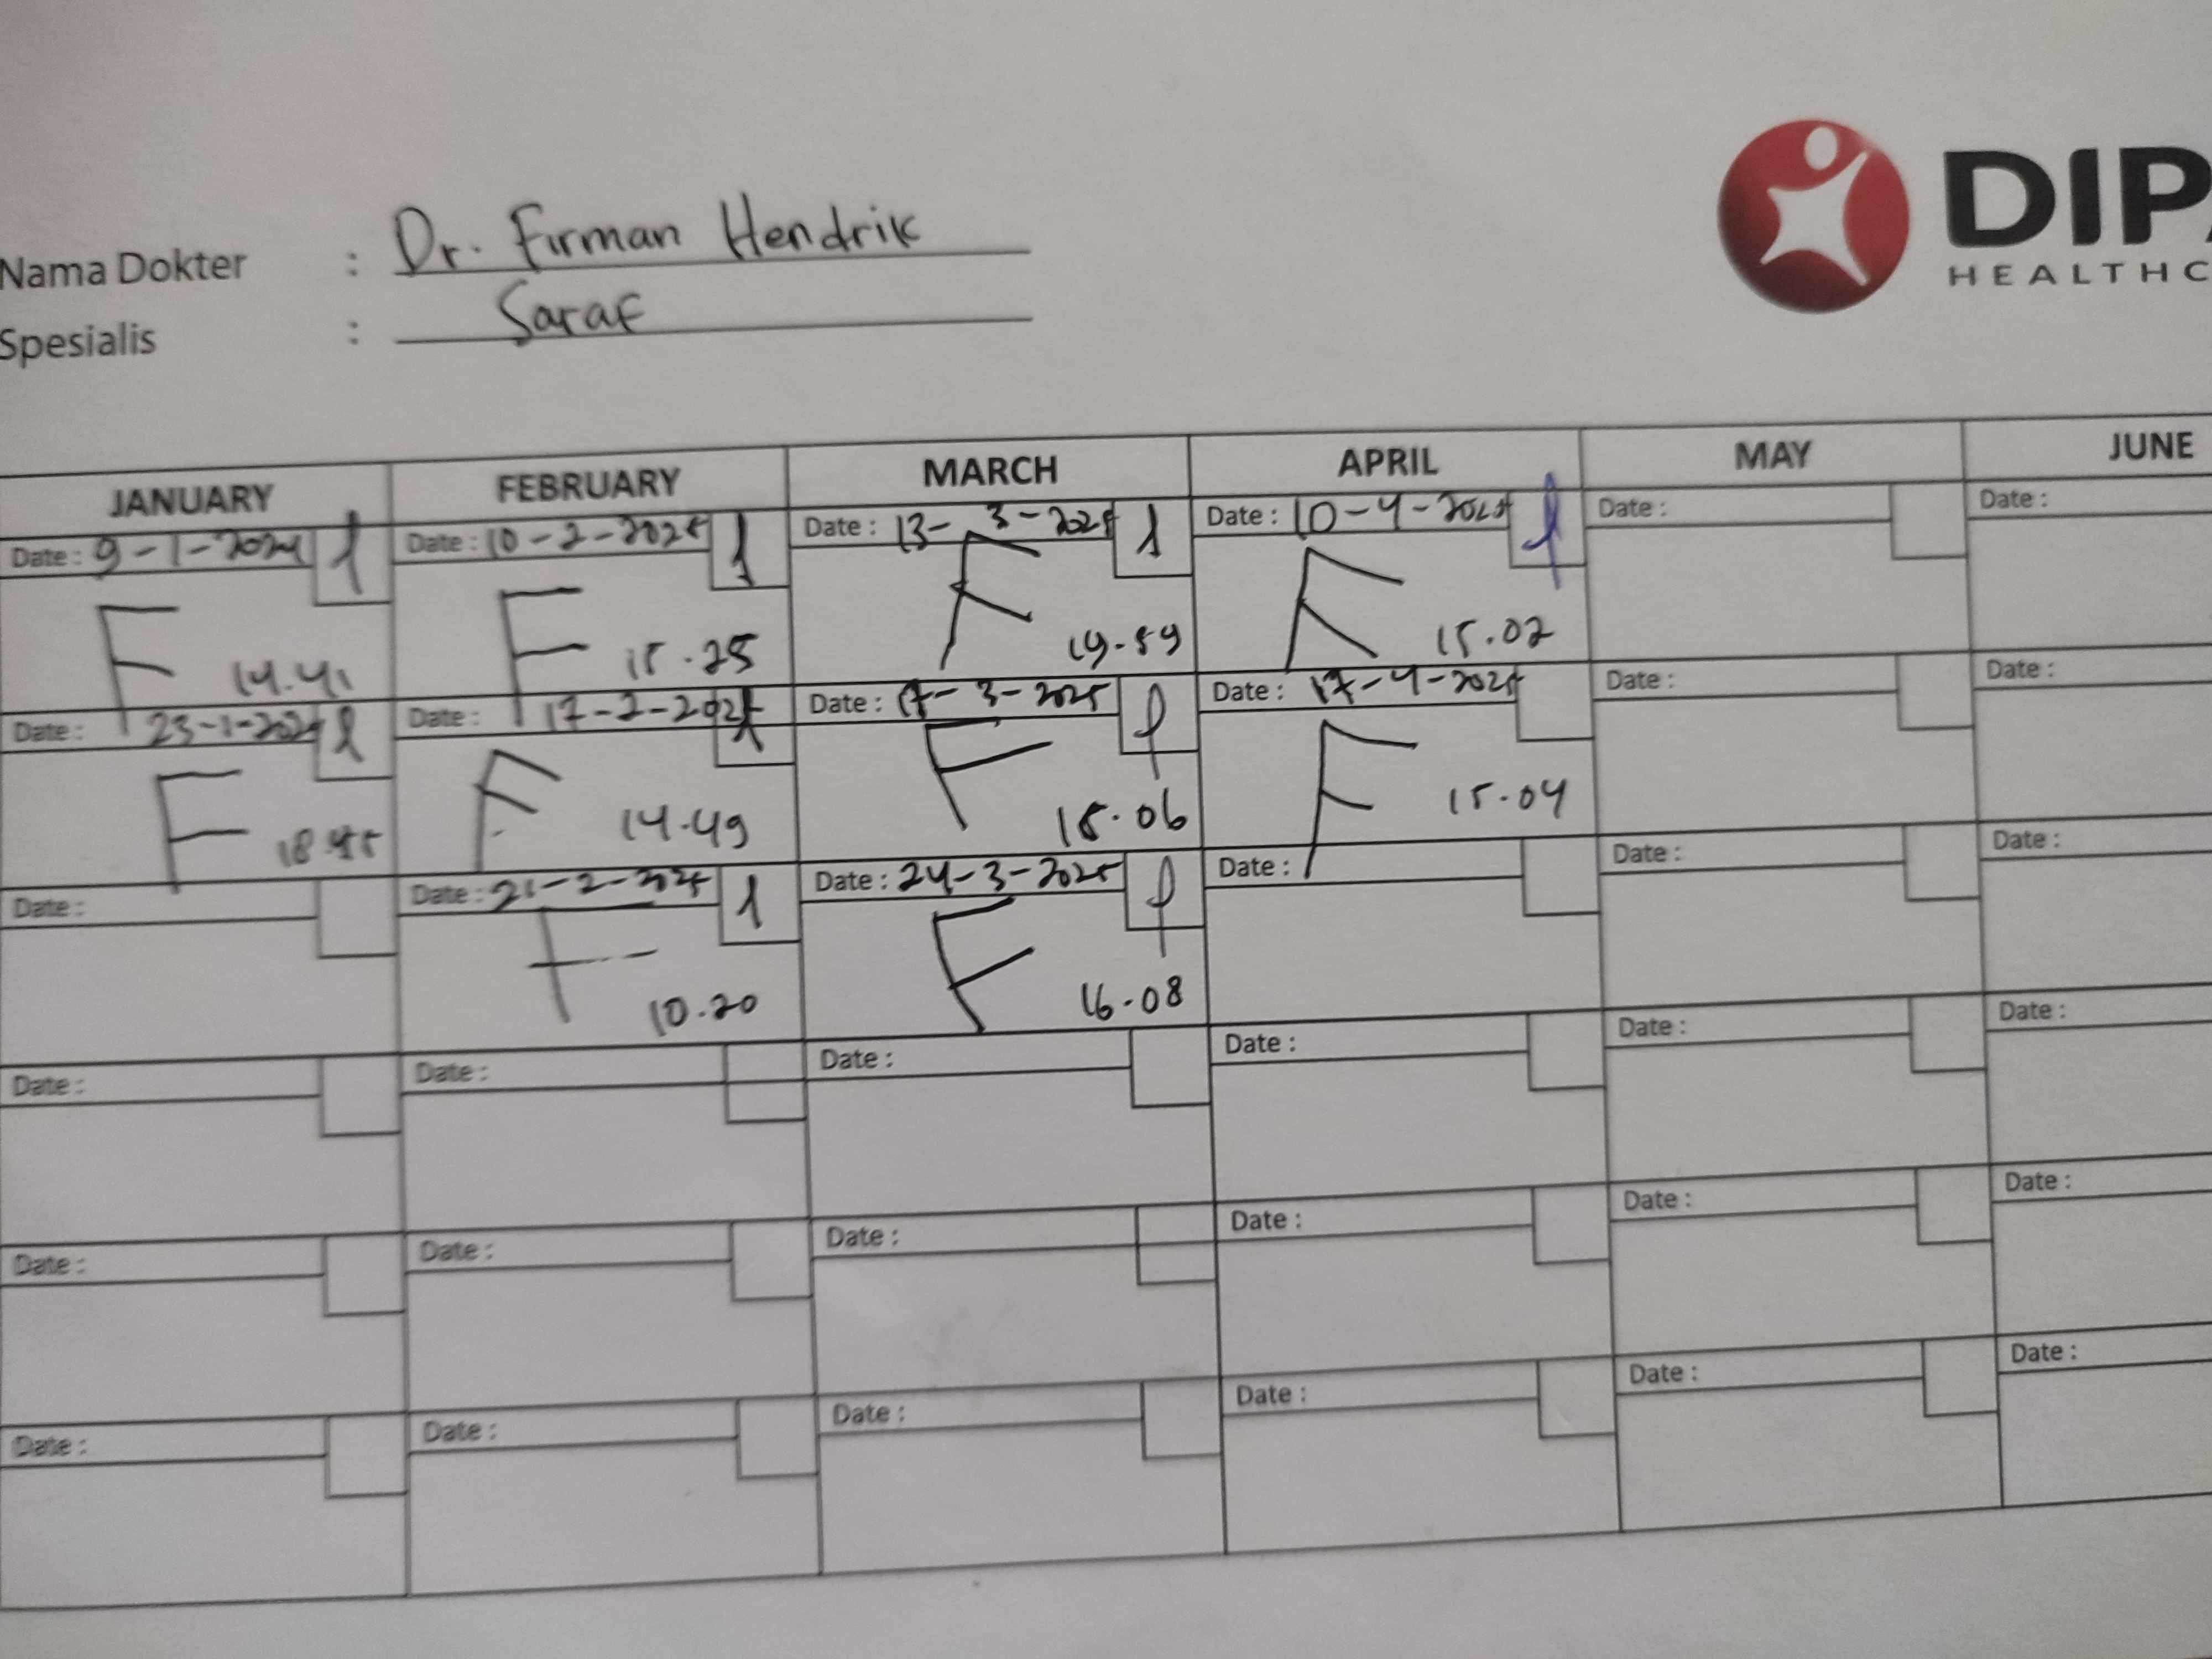 DIPA
HEALTHC
Nama Dokter : Dr. Firman Hendrik
Spesialis : Saraf
JANUARY FEBRUARY MARCH APRIL MAY JUNE
Date : 9-1-2025 Date : 10-2-2025 Date : 13-3-2025 Date : 10-4-2025 Date : Date :
F 14.41 F 15.25 F 19.59 F 15.02
Date : 23-1-2025 Date : 17-2-2025 Date : 17-3-2025 Date : 17-4-2025 Date : Date :
F 18.45 F 14.49 F 18.06 F 15.04
Date : Date : 21-2-2025 Date : 24-3-2025 Date : Date : Date :
F 10.20 F 16.08
Date : Date : Date : Date : Date : Date :
Date : Date : Date : Date : Date : Date :
Date : Date : Date : Date : Date : Date :